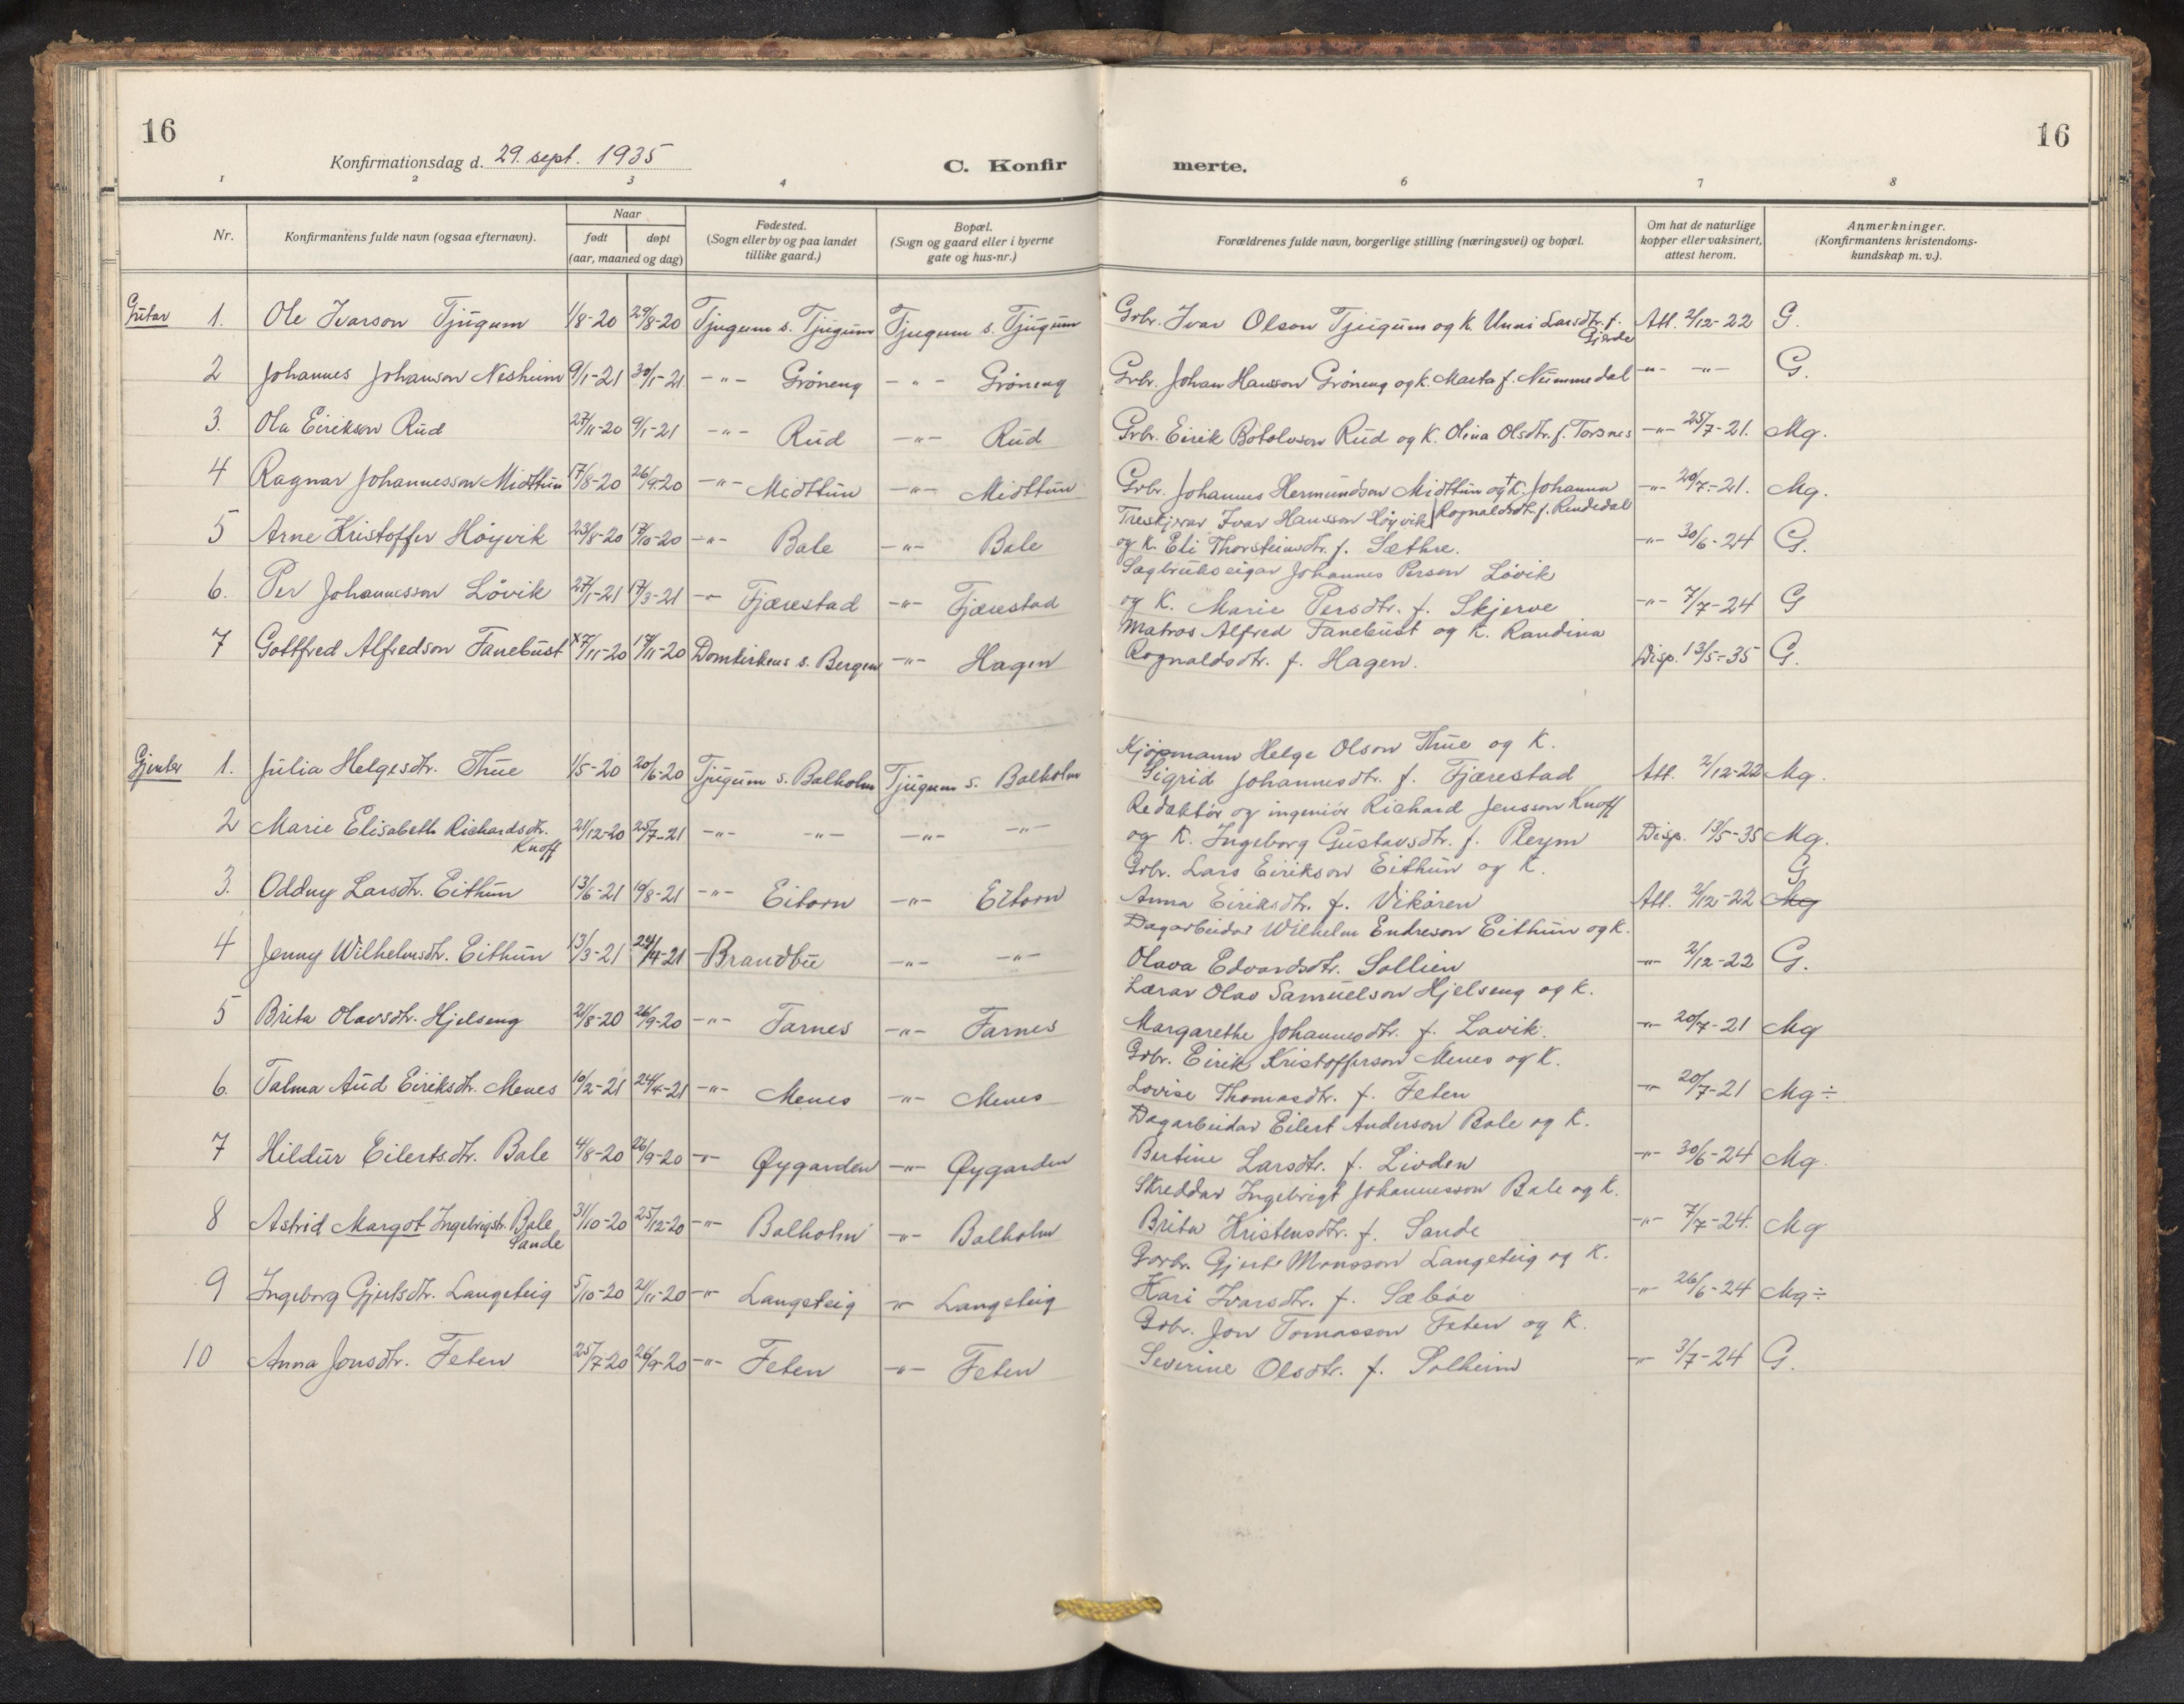 16
16
Konfirmationsdag d. 29. sept. 1935
C. Konfir merte.
1 2 3 4 6 7 8
Nr.
Konfirmantens fulde navn (ogsaa efternavn).
Naar
født døpt
(aar, maaned og dag)
Fødested.
(Sogn eller by og paa landet
tillike gaard.)
Bopæl.
(Sogn og gaard eller i byerne
gate og hus-nr.)
Forældrenes fulde navn, borgerlige stilling (næringsvei) og bopæl.
Om hat de naturlige
kopper eller vaksinert,
attest herom.
Anmerkninger.
(Konfirmantens kristendoms-
kundskap m. v.).
Gutar 1. Ole Ivarson Tjugum 1/8-20 29/8-20 Tjugum s. Tjugum Tjugum s. Tjugum Grbr. Ivar Olson Tjugum og K. Unni Larsdtr. f. Gjerde Att. 2/12-22 G.
2 Johannes Johanson Nesheim 9/1-21 30/1-21 -"- Grøneng -"- Grøneng Grbr. Johan Hansson Grøneng og K. Marta f. Nummedal -"- -"- G.
3. Ola Eirikson Rud 27/11-20 9/1-21 -"- Rud -"- Rud Grbr. Eirik Botolvson Rud og K. Olina Olsdtr. f. Torsnes -"- 25/7-21. Mg.
4 Ragnar Johannesson Midttun 17/8-20 26/9-20 -"- Midttun -"- Midttun Grbr. Johannes Hermundson Midttun og †K. Johanna Rognaldsdtr. f. Rendedal -"- 20/7-21. Mg.
5 Arne Kristoffer Høyvik 23/8-20 17/10-20 -"- Bale -"- Bale Treskjerar Ivar Hansson Høyvik
og K. Eli Thorsteinsdtr. f. Sæthre. -"- 30/6-24 G.
6. Per Johannesson Løvik 27/1-21 17/3-21 -"- Fjærestad -"- Fjærestad Sagbrukseigar Johannes Person Løvik
og K. Marie Persdtr. f. Skjerve -"- 7/7-24 G
7 Gottfred Alfredson Tanebust x 7/11-20 17/11-20 Domkirkens s. Bergen -"- Hagen Matros Alfred Tanebust og K. Randina
Rognaldsdtr. f. Hagen. Disp. 13/5-35 G.
Gjenter 1. Julia Helgesdtr. Thue 1/5-20 20/6-20 Tjugum s. Balholm Tjugum s. Balholm Kjøpmann Helge Olson Thue og K.
Sigrid Johannesdtr. f. Fjærestad Att. 2/12-22 Mg.
2 Marie Elisabeth Richardsdtr. Knoff 21/12-20 25/7-21 -"- -"- -"- -"- Redaktør og ingeniør Richard Jensson Knoff
og K. Ingeborg Gustavsdtr. f. Pleym Disp. 13/5-35 Mg.
3. Oddny Larsdtr. Eithun 13/6-21 10/8-21 -"- Eitorn -"- Eitorn Grbr. Lars Eirikson Eithun og K.
Anna Eiriksdtr. f. Vikøren Att. 2/12-22 Mg G
4 Jenny Wilhelmsdtr. Eithun 13/3-21 24/4-21 -Brandbu -"- -"- Dagarbeidar Wilhelm Endreson Eithun og K.
Olava Edvardsdtr. Sollien -"- 2/12-22 G.
5 Brita Olavsdtr. Hjelseng 21/8-20 26/9-20 -"- Farnes -"- Farnes Lærar Olav Samuelson Hjelseng og K.
Margarethe Johannesdtr. f. Lavik. -"- 20/7-21 Mg
6. Talma Aud Eiriksdtr. Menes 10/2-21 24/4-21 -"- Menes -"- Menes Grbr. Eirik Kristofferson Menes og K.
Lovise Thomasdtr. f. Feten -"- 20/7-21 Mg ÷
7 Hildur Eilertsdtr. Bale 4/8-20 26/9-20 -"- Øygarden -"- Øygarden Dagarbeidar Eilert Anderson Bale og K.
Bertine Larsdtr. f. Livden -"- 30/6-24 Mg.
8 Astrid Margot Ingebrigtr. Bale Sande 31/10-20 25/12-20 -"- Balholm -"- Balholm Skreddar Ingebrigt Johannesson Bale og K.
Brita Kristensdtr. f. Sande -"- 7/7-24. Mg
9 Ingeborg Gjertsdtr. Langeteig 5/10-20 21/11-20 -"- Langeteig -"- Langeteig Grbr. Gjert Monsson Langeteig og K.
Kari Ivarsdtr. f. Sæbøe -"- 26/6-24 Mg ÷
10 Anna Jonsdtr. Feten 25/7-20 26/9-20 -"- Feten -"- Feten Grbr. Jon Tomasson Feten og K.
Severine Olsdtr. f. Solheim -"- 3/7-24 G.